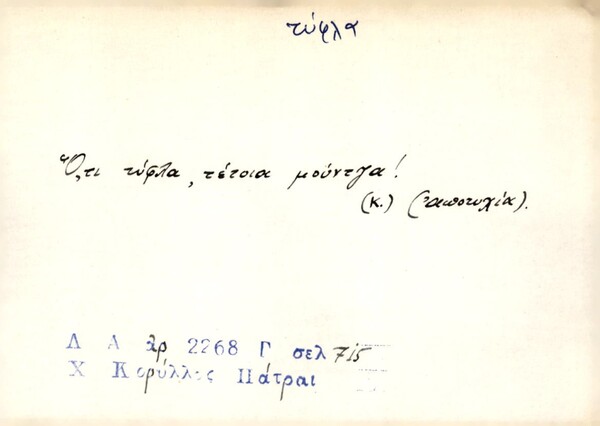 τύφλα
Ὅ,τι τύφλα, τέτοια μούντζα!
(κ.) (ἀποτυχία).
Λ Α ἀρ 2268 Γ σελ 715
Χ Κορύλλος Πάτραι